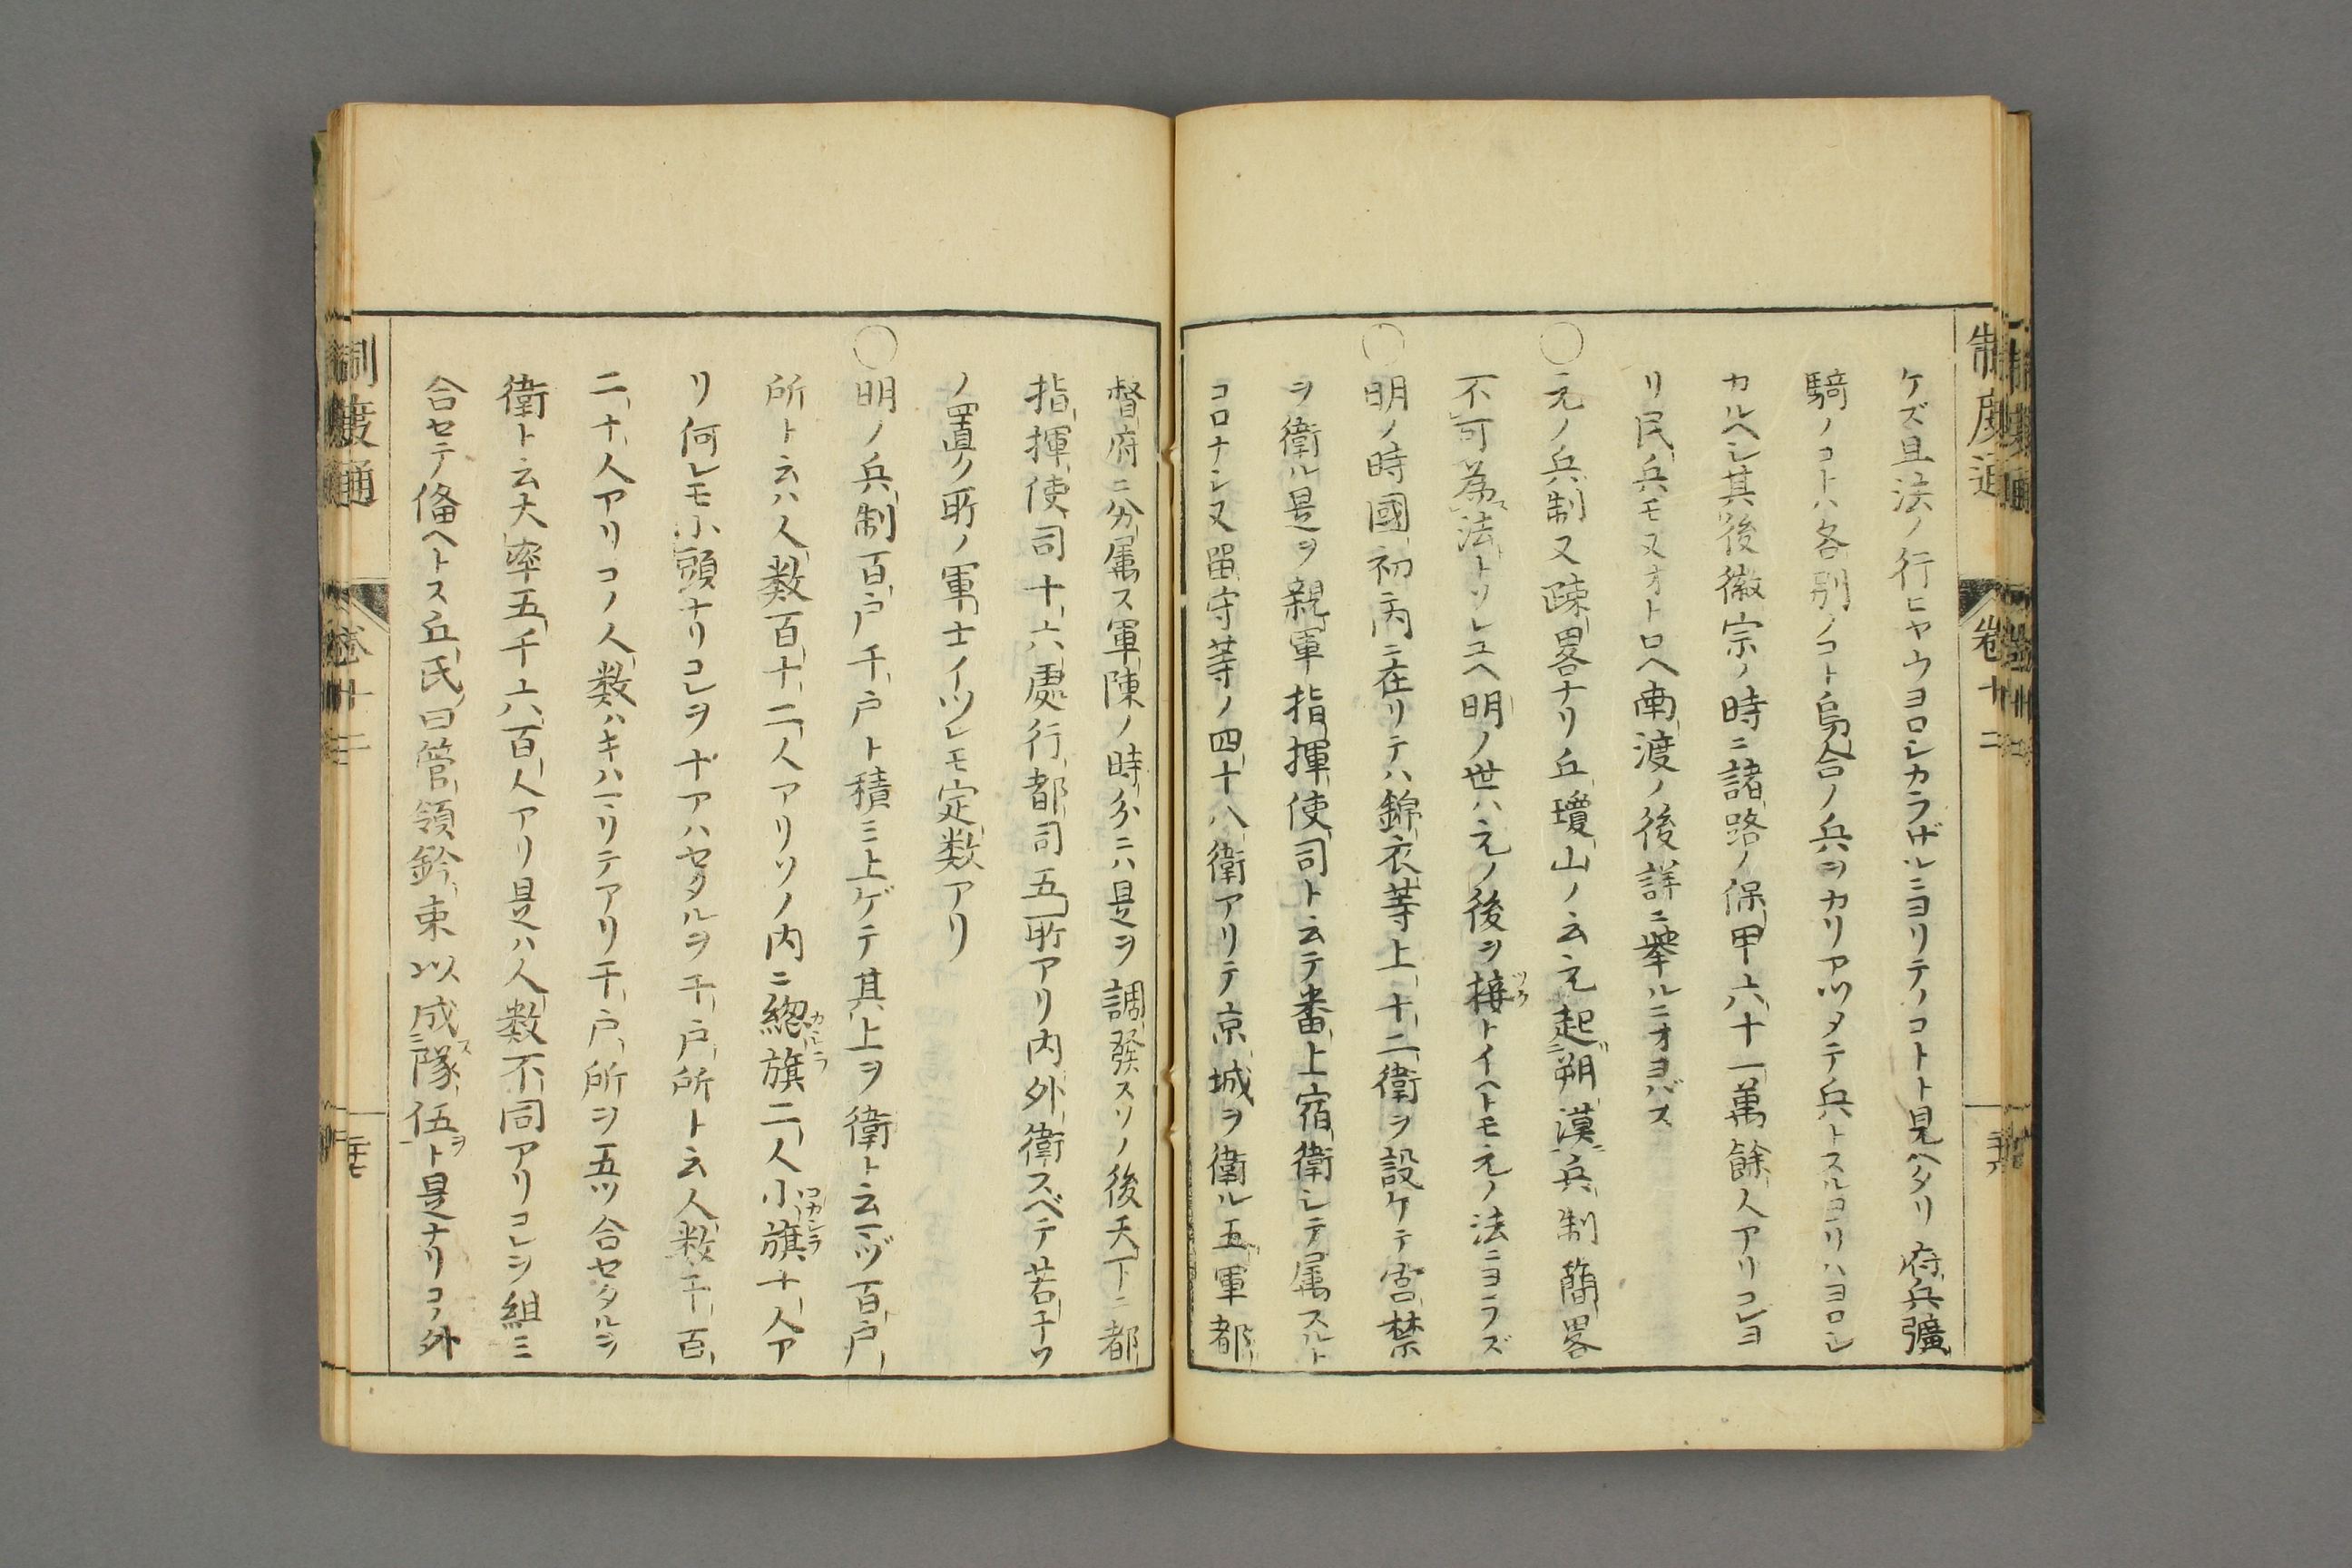 制度通
卷十二
ケズ且法ノ行ヒヤウヨロシカラザルニヨリテノコトト見ヘタリ府兵彍
騎ノコトハ各別ノコト烏合ノ兵ヲカリアツメテ兵トスルヨリハヨロシ
カルヘシ其後徽宗ノ時ニ諸路ノ保甲六十一萬餘人アリコレヨ
リ民兵モ又オトロヘ南渡ノ後詳ニ擧ルニオヨバス
○元ノ兵制又疎畧ナリ丘瓊山ノ云元起朔漠兵制簡畧
不可為法トソレユヘ明ノ世ハ元ノ後ヲ接トイヘトモ元ノ法ニヨラズ
○明ノ時國初内ニ在リテハ錦衣等上十二衛ヲ設ケテ宮禁
ヲ衛ル是ヲ親軍指揮使司ト云テ番上宿衛シテ属スルト
コロナシ又留守等ノ四十八衛アリテ京城ヲ衛ル五軍都
督府ニ分属ス軍陳ノ時分ニハ是ヲ調發スソノ後天下ニ都
指揮使司十六處行都司五所アリ内外衛スベテ若干ツ
ノ置ク所ノ軍士イツレモ定数アリ
○明ノ兵制百戸千戸ト積ミ上ゲテ其上ヲ衛ト云一ヅ百戸
所ト云ハ人数百十二人アリソノ内ニ総旗二人小旗十人ア
リ何レモ小頭ナリコレヲ十アハセタルヲ千戸所ト云人数千百
二十人アリコノ人数ハキハマリテアリ千戸所ヲ五ツ合セタルヲ
衛ト云大率五千六百人アリ是ハ人数不同アリコレヲ組ミ
合セテ備ヘトス丘氏曰管領鈐束以成隊伍ト是ナリコノ外
制度通
卷十二